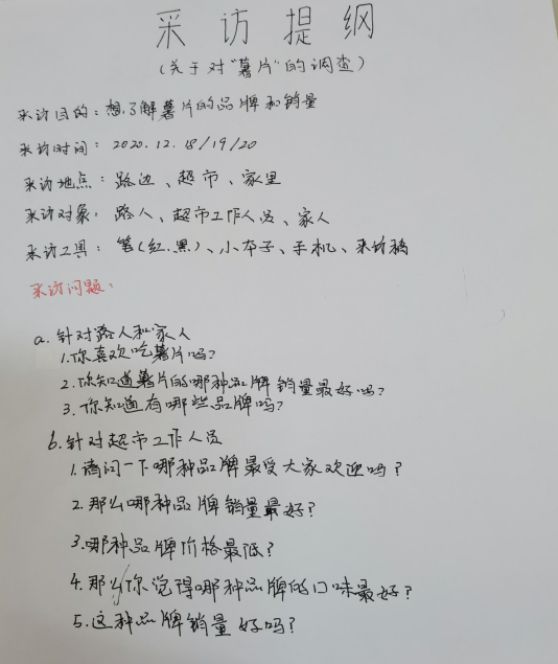 采访提纲
(关于对“薯片”的调查)
采访目的:想了解薯片的品牌和销量
采访时间:2020.12.18/19/20
采访地点:路边、超市、家里
采访对象:路人、超市工作人员、家人
采访工具:笔(红.黑)、小本子、手机、采访稿
采访问题:
a.针对路人和家人
1.你喜欢吃薯片吗?
2.你知道薯片的哪种品牌销量最好吗?
3.你知道有哪些品牌吗?
b.针对超市工作人员
1.请问一下哪种品牌最受大家欢迎吗?
2.那么哪种品牌销量最好?
3.哪种品牌价格最低?
4.那么你觉得哪种品牌的口味最好?
5.这种品牌销量好吗?